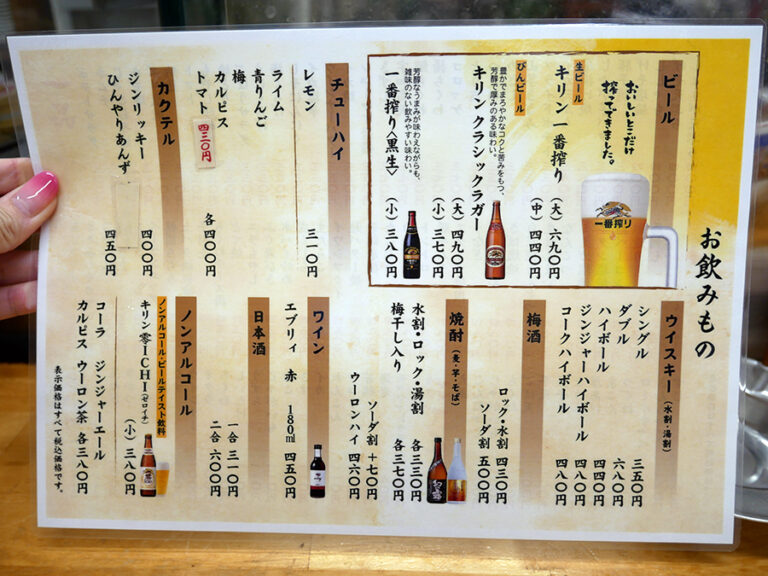 お飲みもの
ビール
おいしいとこだけ
搾ってできました。
一番搾り
生ビール
キリン一番搾り
(大)六九〇円
(中)四四〇円
びんビール
キリン クラシックラガー
豊かでまろやかなコクと苦みをもつ、
芳醇で厚みのある味わい。
(大)四九〇円
(小)三七〇円
一番搾り〈黒生〉
芳醇なうまみが味わえながらも、
雑味のない飲みやすい味わい。
(小)三八〇円
チューハイ
レモン 三一〇円
ライム
青りんご
梅
カルピス
トマト 四三〇円
各四〇〇円
カクテル
ジンリッキー 四〇〇円
ひんやりあんず 四五〇円
ウイスキー(水割・湯割)
シングル 三五〇円
ダブル 六八〇円
ハイボール 四四〇円
ジンジャーハイボール 四八〇円
コークハイボール 四八〇円
梅酒
ロック・水割 四三〇円
ソーダ割 五〇〇円
焼酎(麦・芋・そば)
水割・ロック・湯割 各三三〇円
梅干し入り 各三七〇円
ソーダ割 +七〇円
ウーロンハイ 四六〇円
ワイン
エブリィ 赤 180ml 四五〇円
日本酒
一合 三一〇円
二合 六〇〇円
ノンアルコール
ノンアルコール・ビールテイスト飲料
キリン零ICHI(ゼロイチ)
(小)三八〇円
コーラ ジンジャーエール
カルピス ウーロン茶 各三八〇円
表示価格はすべて税込価格です。